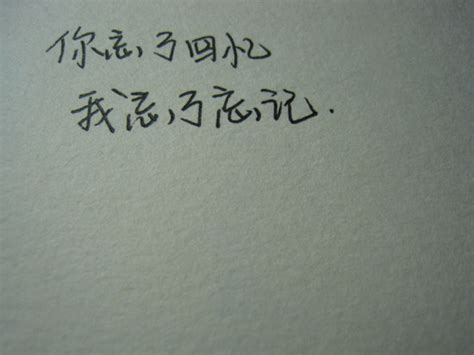 你忘了回忆
我忘了忘记.